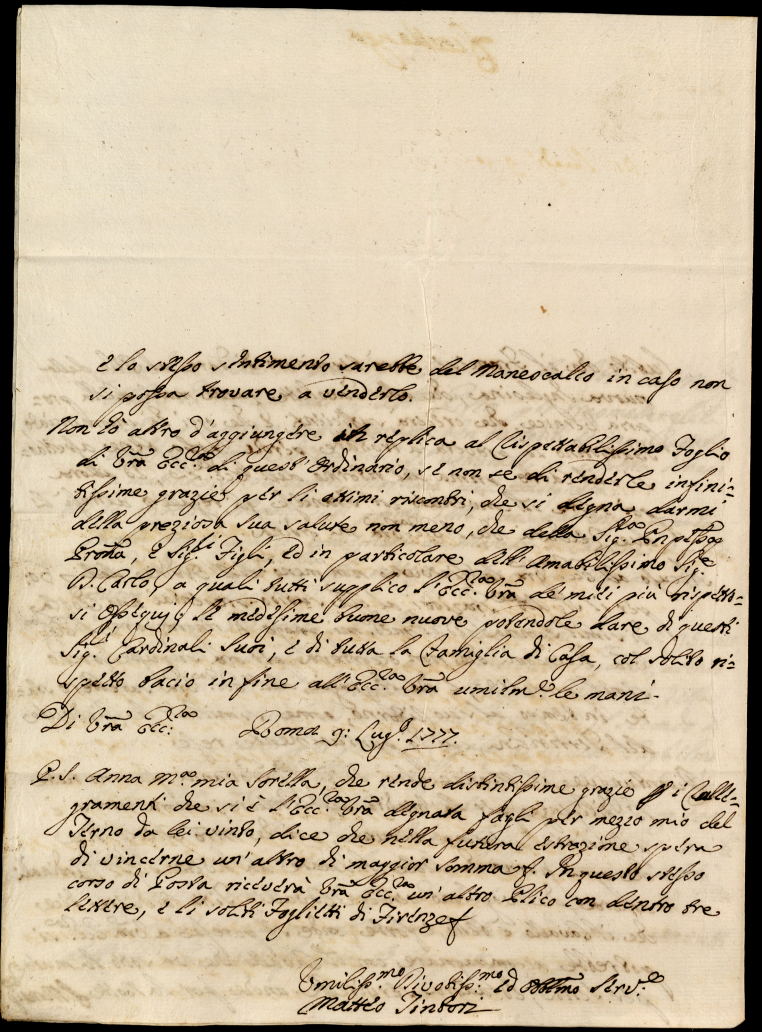 e lo stesso sentimento sarebbe del Maneocalco in caso non
si possa trovare a venderlo.
Non ho altro d'aggiungere in replica al Rispettabilissimo Foglio
di Vrã Ecc.za di quest'Ordinario, se non se di renderle infini=
tissime grazie per li ottimi riscontri, che si degna darmi
della preziosa sua salute non meno, che della Sig.ra Pnpssa
Pronã, e Sig.ri Figli, ed in particolare dell'Amabilissimo Sig.e
D. Carlo, a quali tutti supplico l'Ecc.za Vrã de miei più rispetto=
si ossequi; le medesime buone nuove potendole dare di questi
Sig.i Cardinali suoi, e di tutta la Famiglia di Casa, col solito ri=
spetto bacio in fine all'Ecc.za Vrã umilm.e le mani.
Di Vrã Ecc:za Roma 9: Lug.o 1777.
P.S. Anna M.a mia Sorella, che rende distintissime grazie p i Ralle=
gramenti che si è l'Ecc.za Vrã degnata fargli per mezzo mio del
Terno da lei vinto, dice che nella futura estrazione spera
di vincerne un'altro di maggior somma. In questo stesso
corso di Posta riceverà Vrã Ecc.za un'altro Plico con dentro tre
lettere, e li soliti Foglietti di Firenze
Umiliss.mo Divotiss.mo ed Obblmo Serv.e
Matteo Tintori